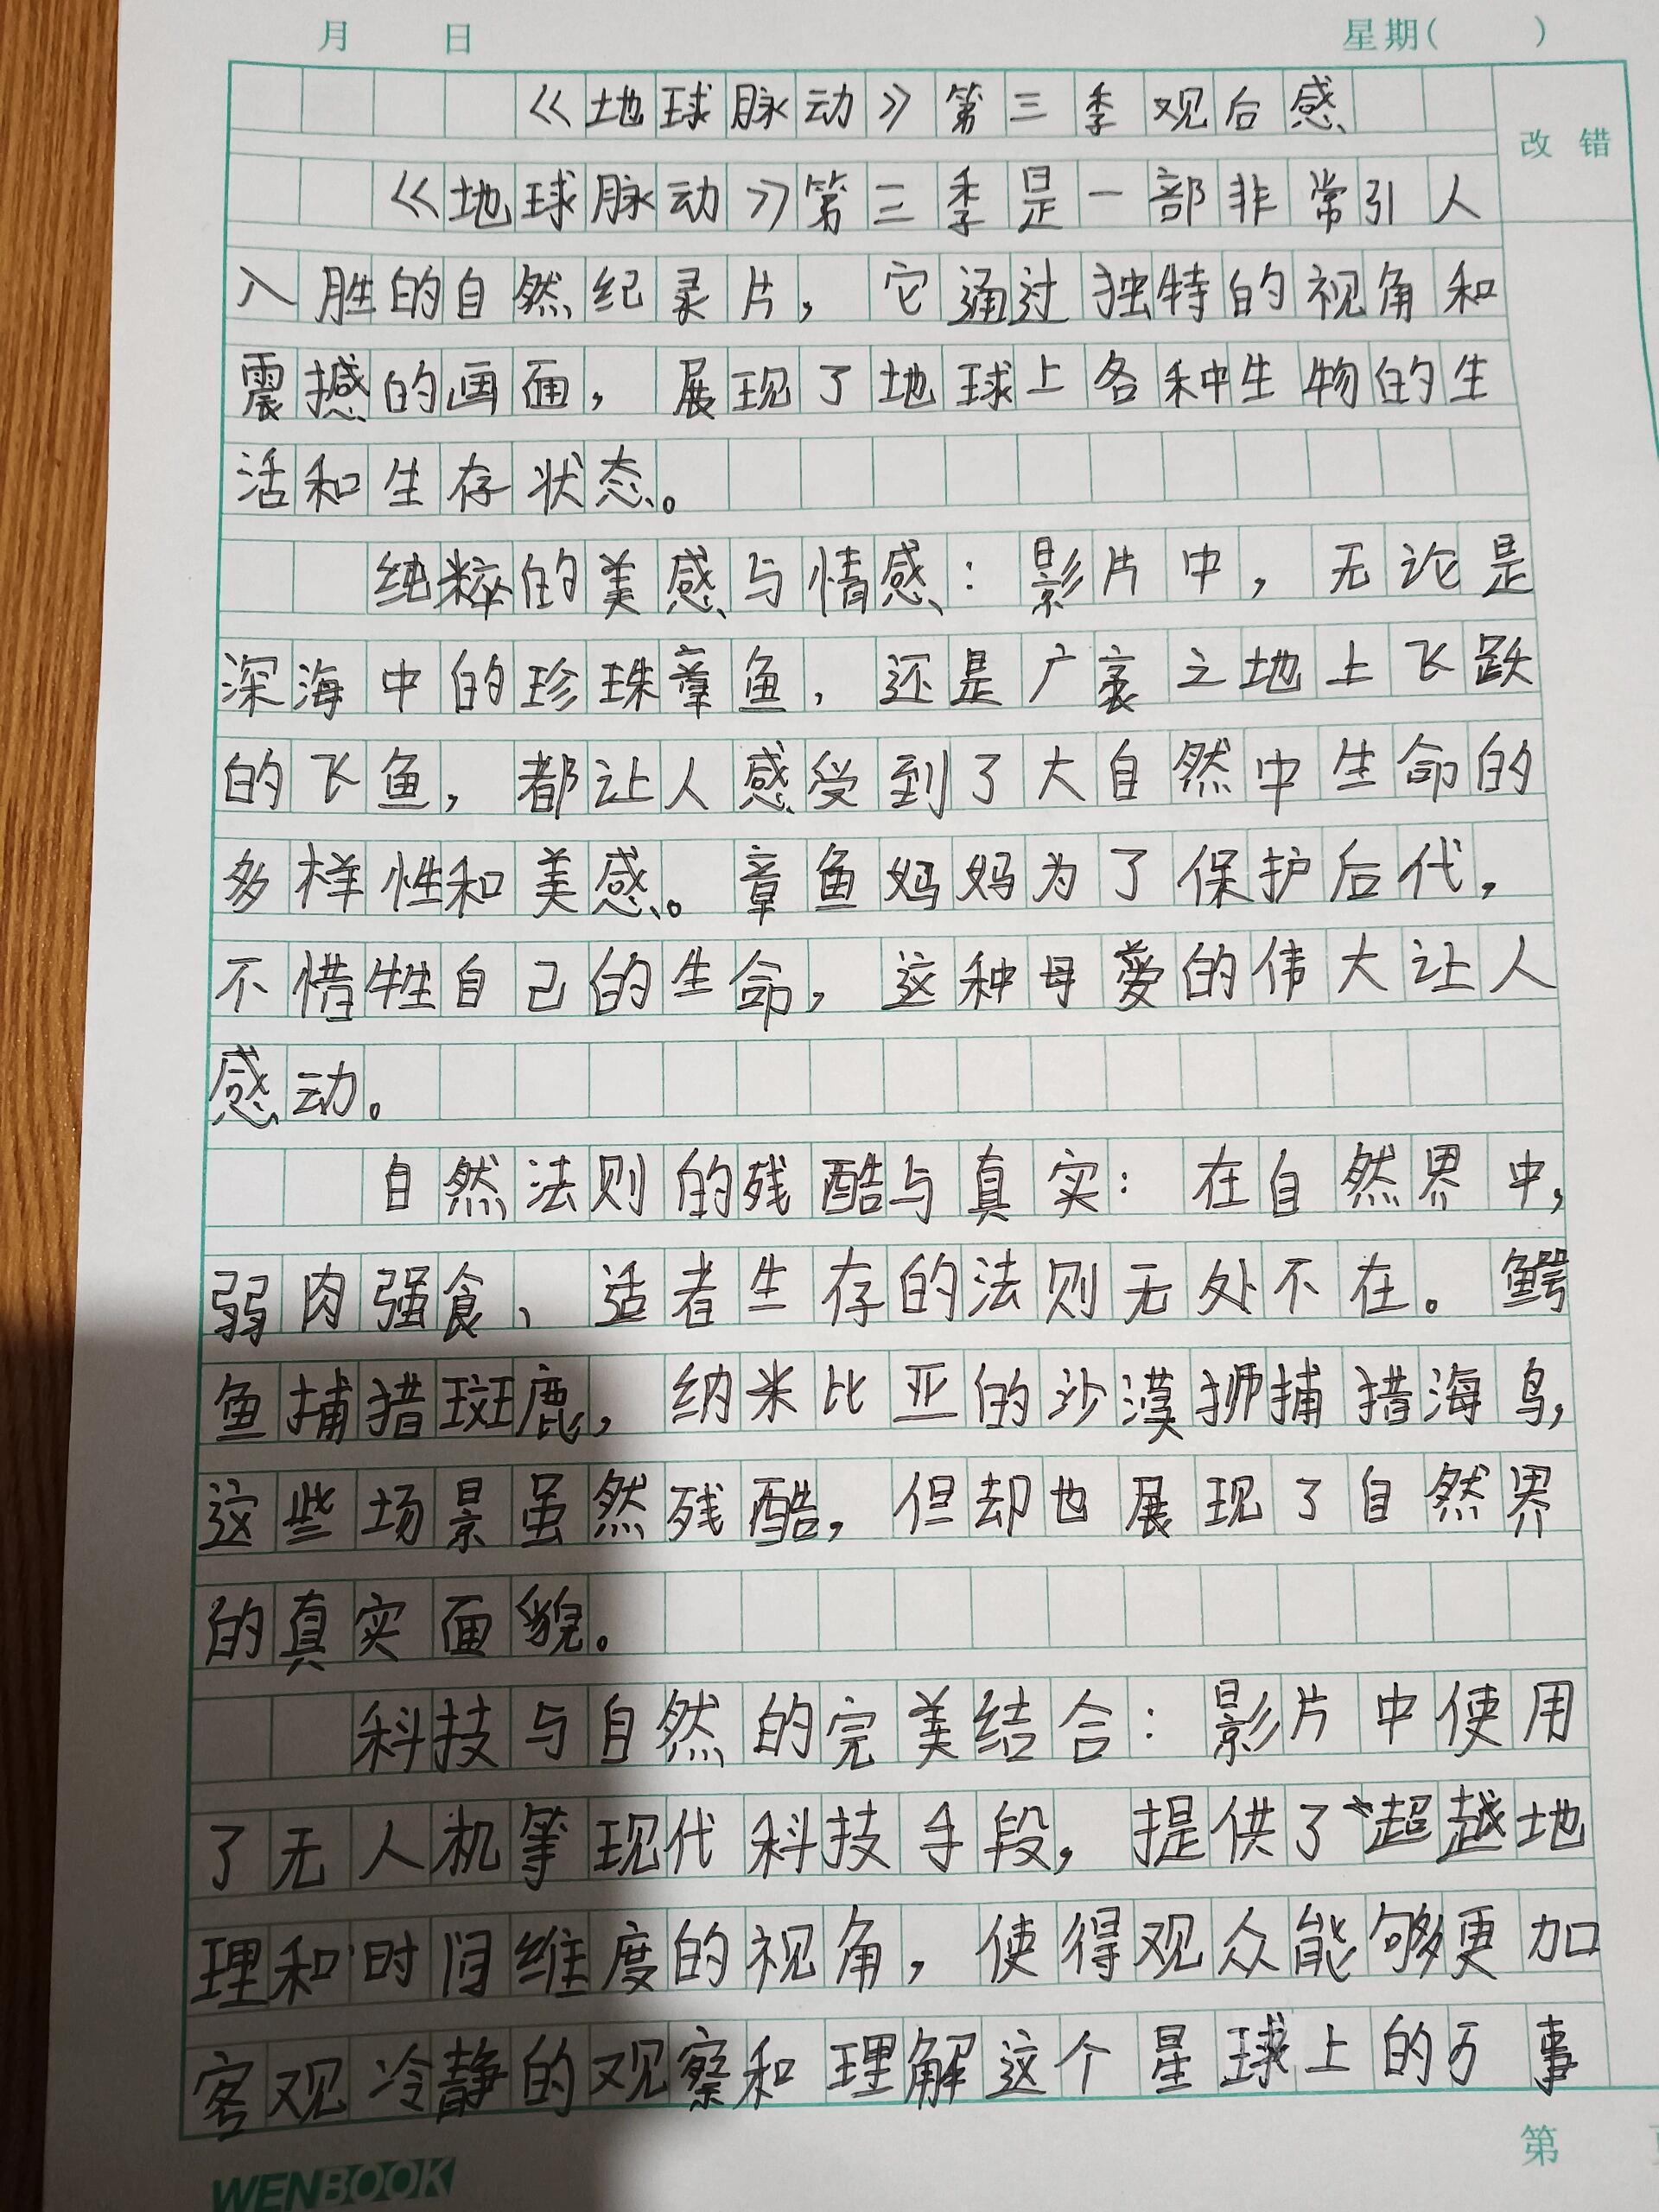 月 日 星期( )
《地球脉动》第三季观后感
改错
《地球脉动》第三季是一部非常引人
入胜的自然纪录片，它通过独特的视角和
震撼的画面，展现了地球上各种生物的生
活和生存状态。
纯粹的美感与情感：影片中，无论是
深海中的珍珠章鱼，还是广袤之地上飞跃
的飞鱼，都让人感受到了大自然中生命的
多样性和美感。章鱼妈妈为了保护后代，
不惜牲自己的生命，这种母爱的伟大让人
感动。
自然法则的残酷与真实：在自然界中，
弱肉强食、适者生存的法则无处不在。鳄
鱼捕猎斑鹿，纳米比亚的沙漠狮捕猎海鸟，
这些场景虽然残酷，但却也展现了自然界
的真实面貌。
科技与自然的完美结合：影片中使用
了无人机等现代科技手段，提供了超越地
理和时间维度的视角，使得观众能够更加
客观冷静的观察和理解这个星球上的万事
第
WENBOOK